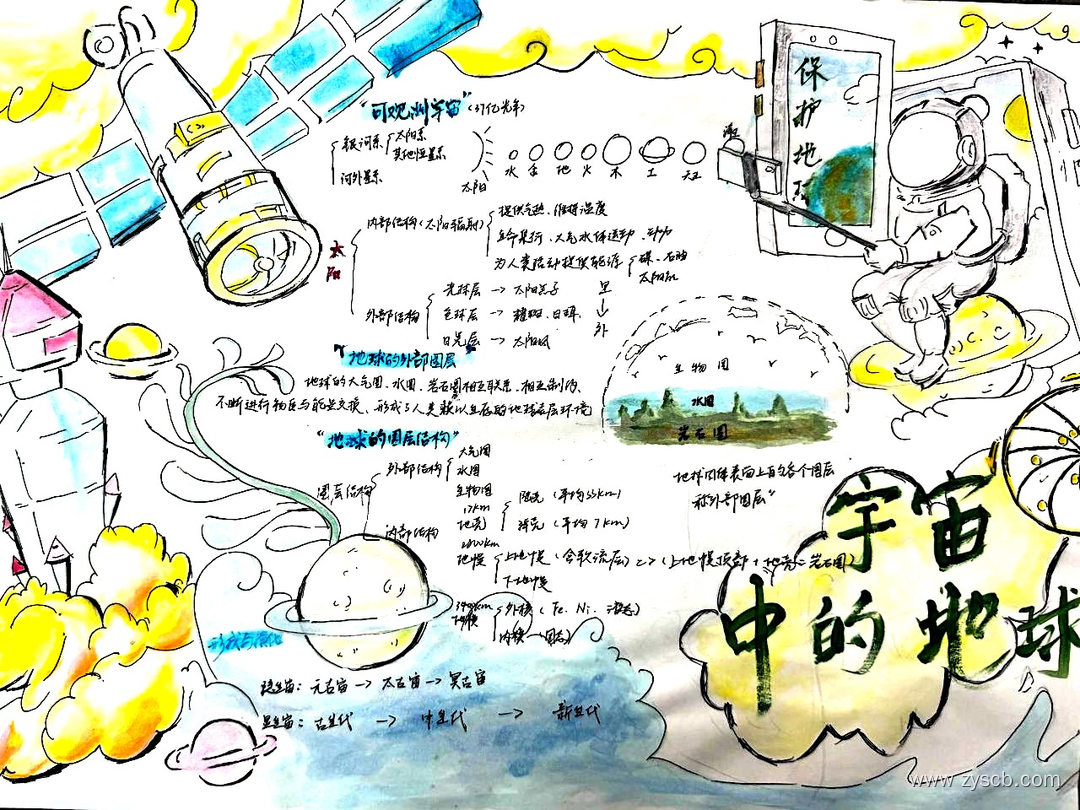 "可观测宇宙"
银河系
太阳系
其他恒星系
河外星系
太阳
水 金 地 火 木 土 天王 海王
保护地球
太阳
内部结构(太阳辐射)
提供光热、维持温度
生命繁衍、大气水体运动、动力
为人类活动提供能源
煤、石油
外部结构
光球层 -> 太阳黑子
色球层 -> 耀斑、日珥
日冕层 -> 太阳风
里
外
"地球的外部圈层"
地球的大气圈、水圈、岩石圈相互联系、相互制约、
不断进行物质与能量交换、形成了人类赖以生存的地球表层环境
生物圈
水圈
岩石圈
"地球的圈层结构"
圈层结构
外部结构
大气圈
水圈
生物圈
内部结构
17km
地壳
陆壳 (平均33km)
洋壳 (平均7km)
地幔
上地幔 (含软流层) => (上地幔顶部+地壳=岩石圈)
下地幔
外核 (Fe、Ni、液态)
内核 (固态)
地球固体表面上的各个圈层
称外部圈层"
宇宙
中的地球
形成与演化
隐生宙: 元古宙 -> 太古宙 -> 冥古宙
显生宙: 古生代 -> 中生代 -> 新生代
www.zyscb.com